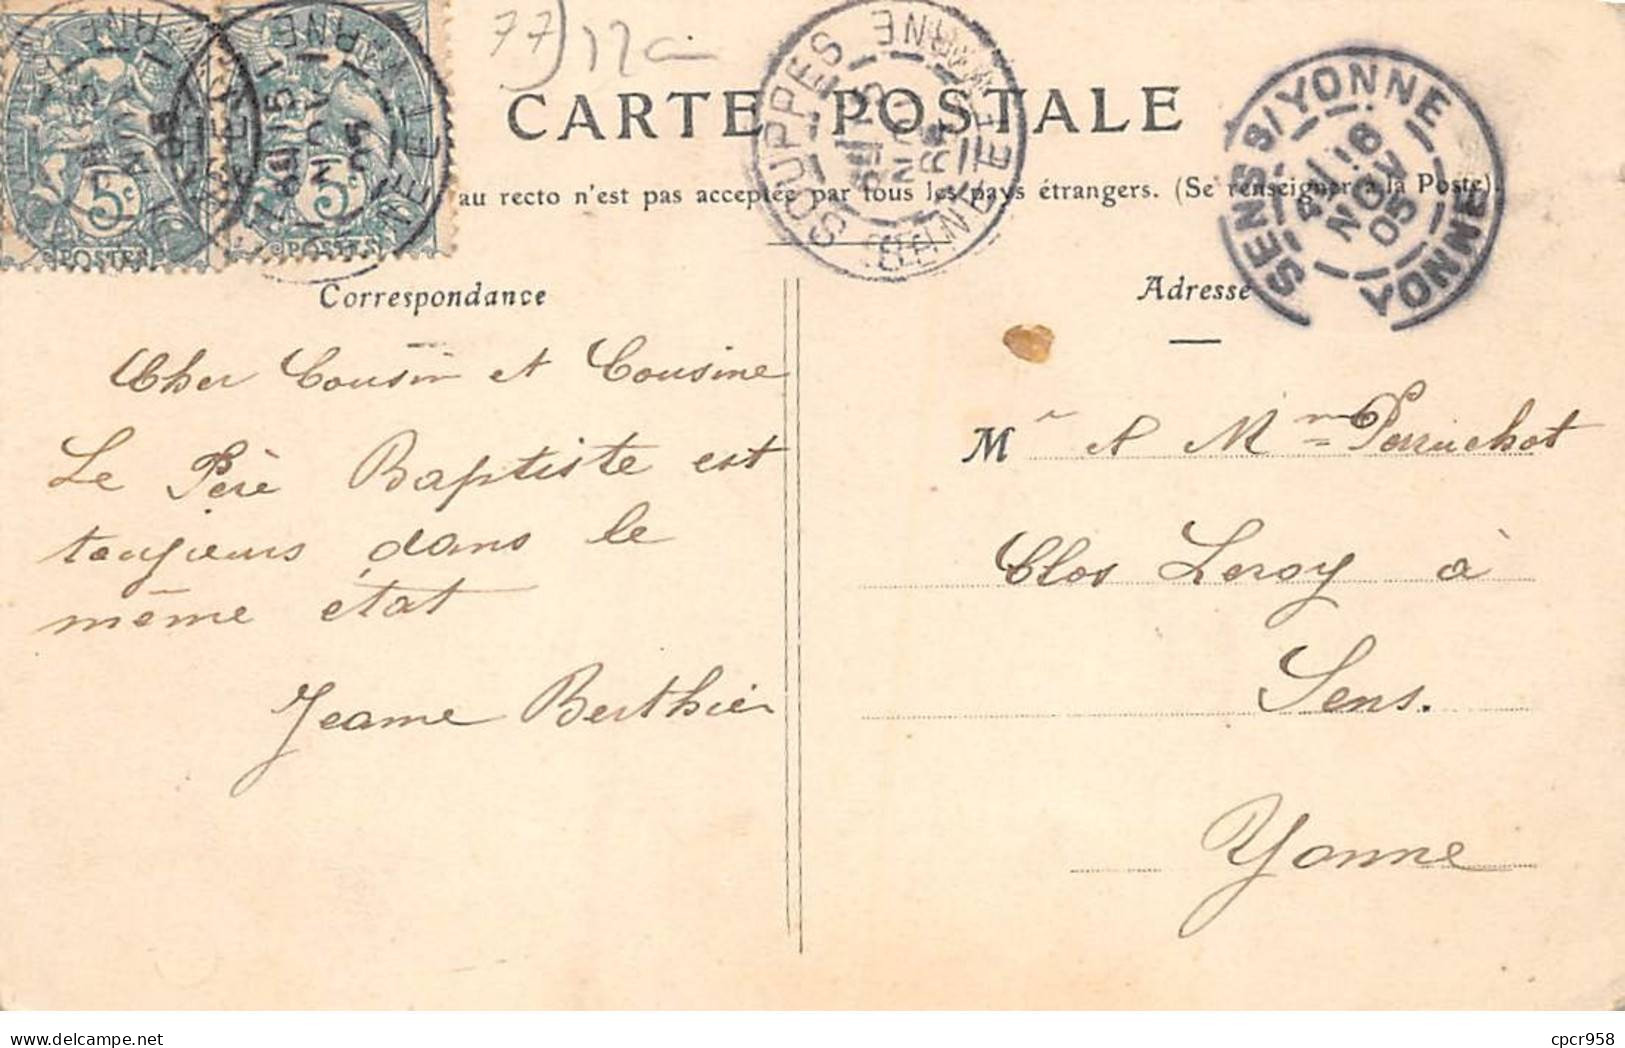 77
CARTE POSTALE
au recto n'est pas acceptée par tous les pays étrangers. (Se renseigner à la Poste).
SOUPPES
SEINE ET MARNE
15
NOV
05
SENS S/YONNE
16
NOV
05
YONNE
5c
POSTES
5c
POSTES
Correspondance
Cher Cousin et Cousine
Le Père Baptiste est
toujours dans le
même état
Jeanne Berthier
Adresse
Mr & Mme Perruchot
Clos Leroy à
Sens.
Yonne
delcampe.net
cpcr958